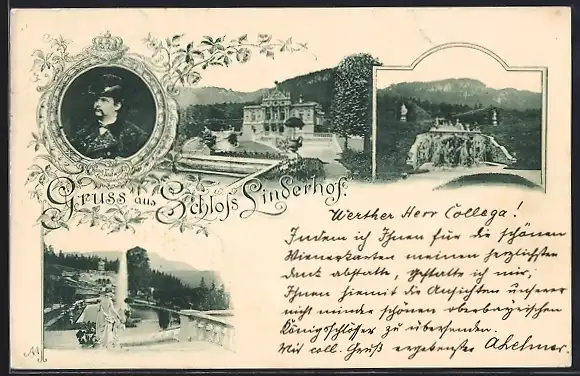 Gruss aus Schloß Linderhof.
Werther Herr Collega!
Indem ich Ihnen für die schönen
Wienerkarten meinen herzlichsten
Dank abstatte, gestatte ich mir,
Ihnen hiemit die Ansichten unserer
nicht minder schönen oberbayrischen
Königsschlösser zu übersenden.
Mit coll. Gruß ergebenster